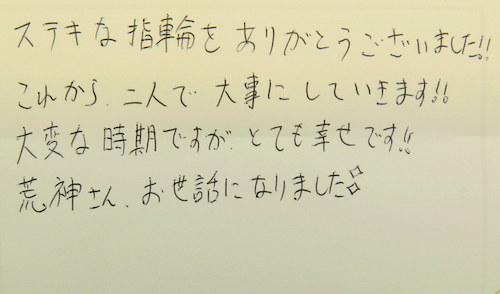 ステキな指輪をありがとうございました!!
これから、二人で大事にしていきます!!
大変な時期ですが、とても幸せです!!
荒神さん、お世話になりました✧✧